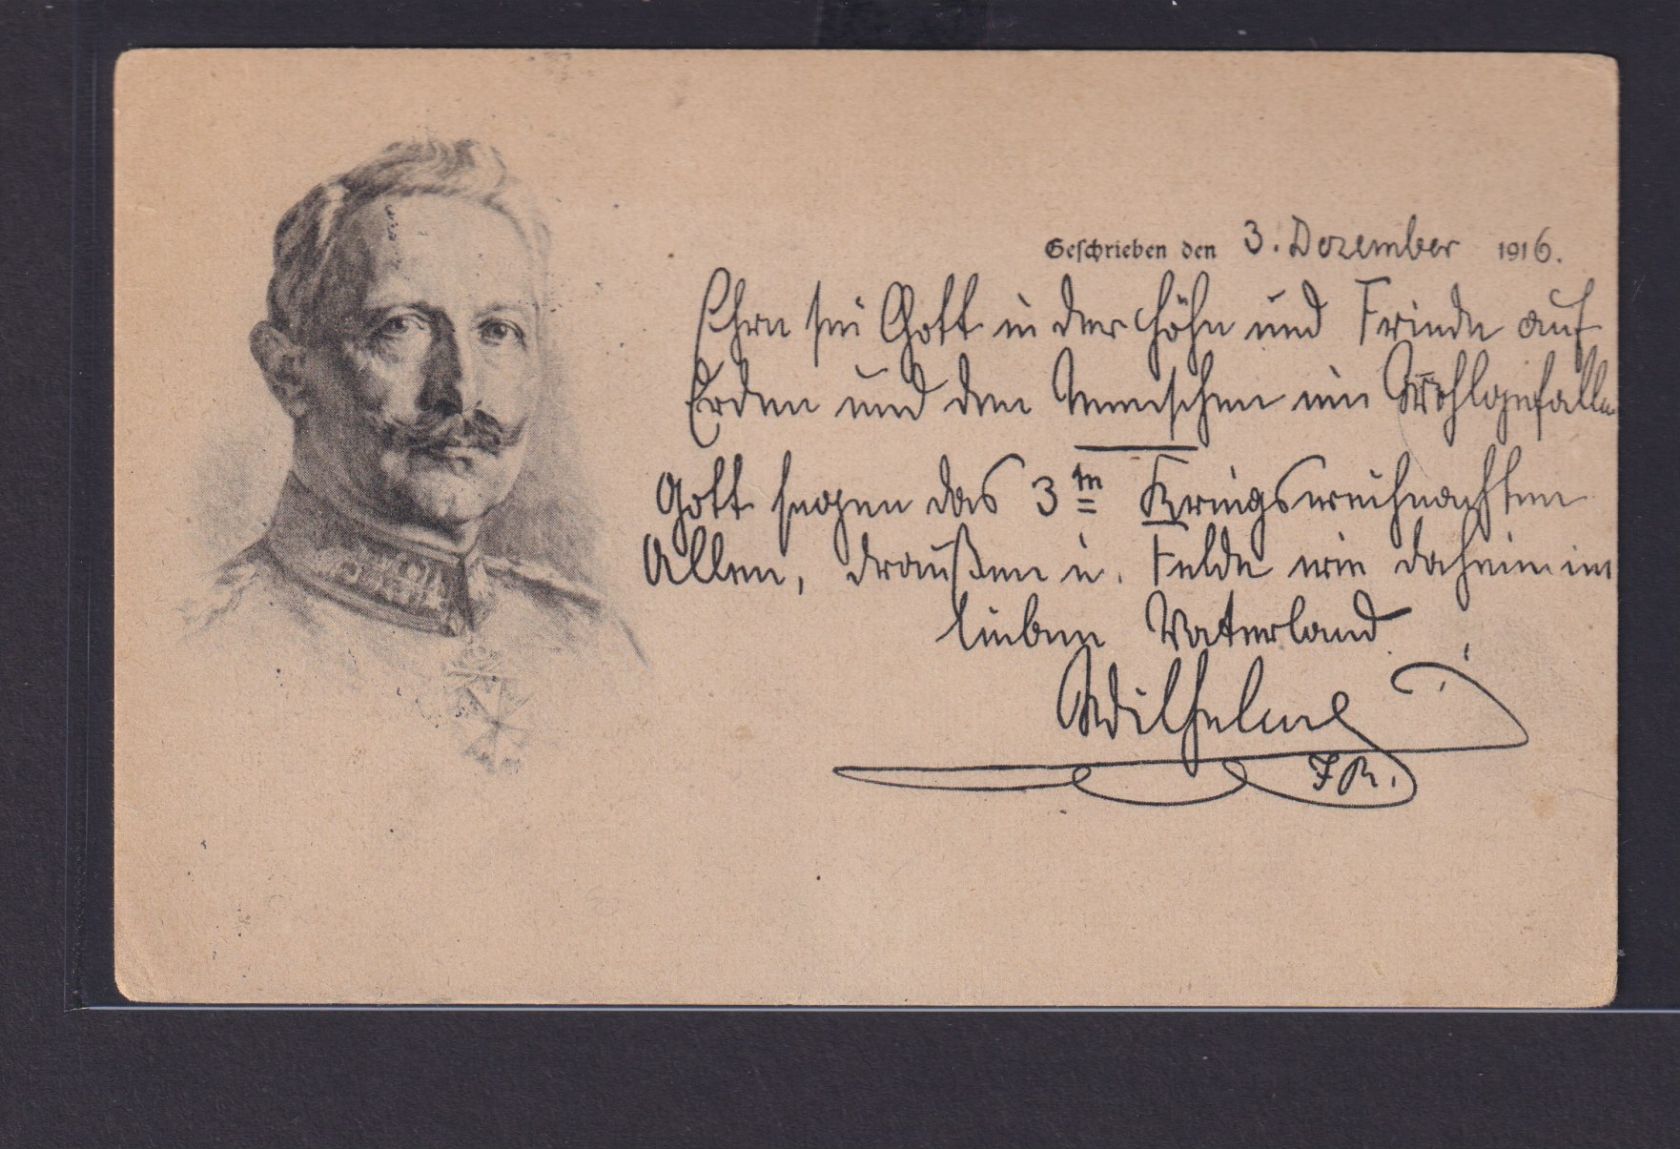 Geschrieben den 3. Dezember 1916.
Ehre sei Gott in der Höhe und Friede auf
Erden und den Menschen ein Wohlgefallen
Gott segne das 3te Kriegsweihnachten
Allen, draußen i. Felde wie daheim im
lieben Vaterland.
Wilhelm
I R.